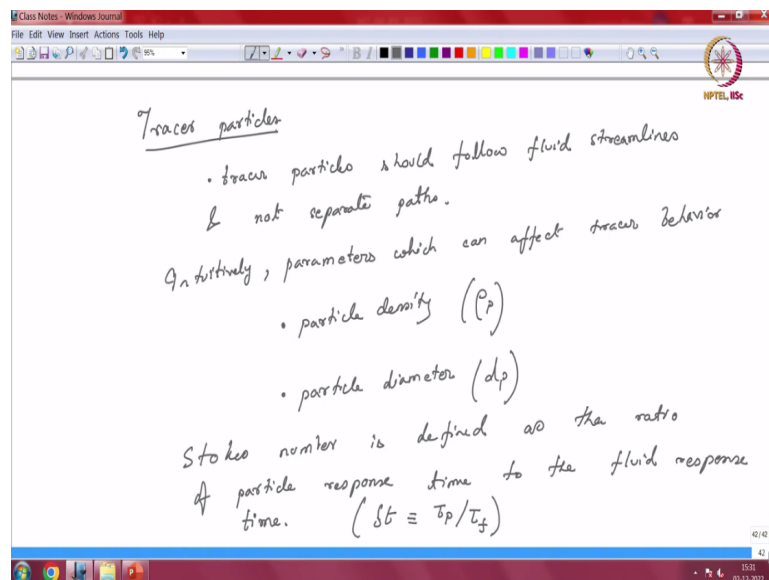 Class Notes - Windows Journal
File Edit View Insert Actions Tools Help
95%
B I
NPTEL, IISc
Tracer particles
• tracer particles should follow fluid streamlines
& not separate paths.
Intuitively, parameters which can affect tracer behavior
• particle density (ρp)
• particle diameter (dp)
Stokes number is defined as the ratio
of particle response time to the fluid response
time. (St ≡ τp/τf)
42/42
42
15:31